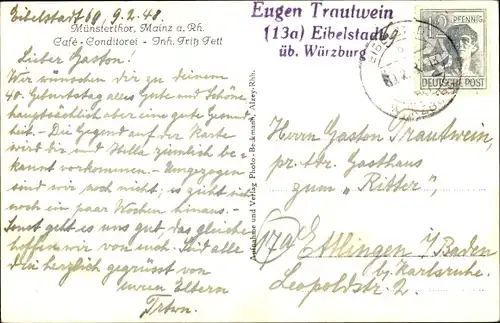 Eibelstadt 69, 9.2.48.
Münsterthor, Mainz a. Rh.
Café-Conditorei - Inh. Fritz Fett
Lieber Gaston!
Wir wünschen dir zu deinem
40. Geburtstag alles Gute und Schöne
hauptsächlich aber eine gute Gesund
heit. - Die Gegend auf der Karte
wird dir und Hella ziemlich be-
kannt vorkommen. - Umgezogen
sind wir noch nicht; es zieht sich
noch ein paar Wochen hinaus. -
Sonst geht es uns gut, das gleiche
hoffen wir von euch. Seid alle
herzlich gegrüsst von
euren Eltern
Trtwn.
Aufnahme und Verlag Photo-Beckmann, Alzey-Rhh.
Eugen Trautwein
(13a) Eibelstadt 69
üb. Würzburg
12 PFENNIG
DEUTSCHE POST
Herrn Gaston Trautwein,
pr. Adr. Gasthaus
zum „Ritter",
17a Ettlingen i/Baden
bei Karlsruhe.
Leopoldstr. 2.